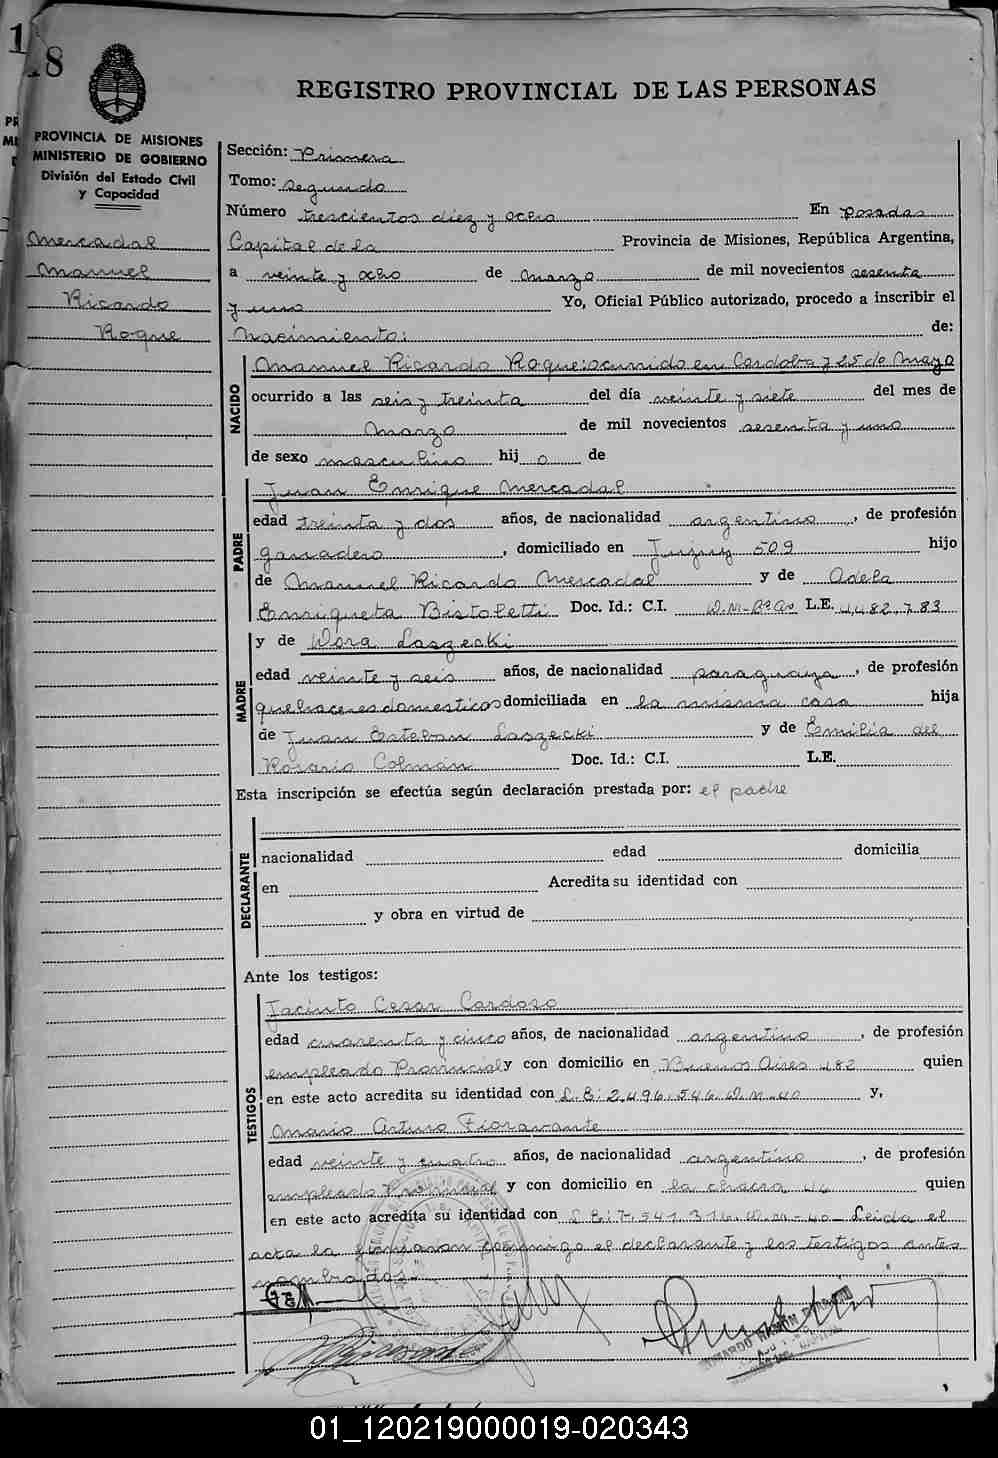 18
REGISTRO PROVINCIAL DE LAS PERSONAS
PROVINCIA DE MISIONES
MINISTERIO DE GOBIERNO
División del Estado Civil
y Capacidad
Mercadal
Manuel
Ricardo
Roque
Sección: Primera
Tomo: segundo
Número trescientos diez y ocho En Posadas
Capital de la Provincia de Misiones, República Argentina,
a veinte y ocho de marzo de mil novecientos sesenta
y uno Yo, Oficial Público autorizado, procedo a inscribir el
Nacimiento: de:
NACIDO
Manuel Ricardo Roque: ocurrido en Cordoba y 25 de Mayo
ocurrido a las seis y treinta del día veinte y siete del mes de
Marzo de mil novecientos sesenta y uno
de sexo masculino hij o de
PADRE
Juan Enrique Mercadal
edad treinta y dos años, de nacionalidad argentino, de profesión
ganadero, domiciliado en Jujuy 509 hijo
de Manuel Ricardo Mercadal y de Adela
Enriqueta Bistoletti Doc. Id.: C.I. D.M-Bs As L.E. 4.482.783
MADRE
y de Dora Laszecki
edad veinte y seis años, de nacionalidad paraguaya, de profesión
quehaceres domesticos domiciliada en la misma casa hija
de Juan Esteban Laszecki y de Emilia del
Rosario Colmán Doc. Id.: C.I. L.E.
Esta inscripción se efectúa según declaración prestada por: el padre
DECLARANTE
nacionalidad edad domicilia
en Acredita su identidad con
y obra en virtud de
Ante los testigos:
TESTIGOS
Jacinto Cesar Cardoso
edad cuarenta y cinco años, de nacionalidad argentino, de profesión
empleado Provincial y con domicilio en Buenos Aires 482 quien
en este acto acredita su identidad con L.E: 2.496.546.D.M.40 y,
Mario Arturo Fioravante
edad veinte y cuatro años, de nacionalidad argentino, de profesión
empleado Provincial y con domicilio en la chacra 46 quien
en este acto acredita su identidad con L.E: 7.541.316.D.M-40- Leida el
acta la firmaron conmigo el declarante y los testigos antes
nombrados.-
01_120219000019-020343